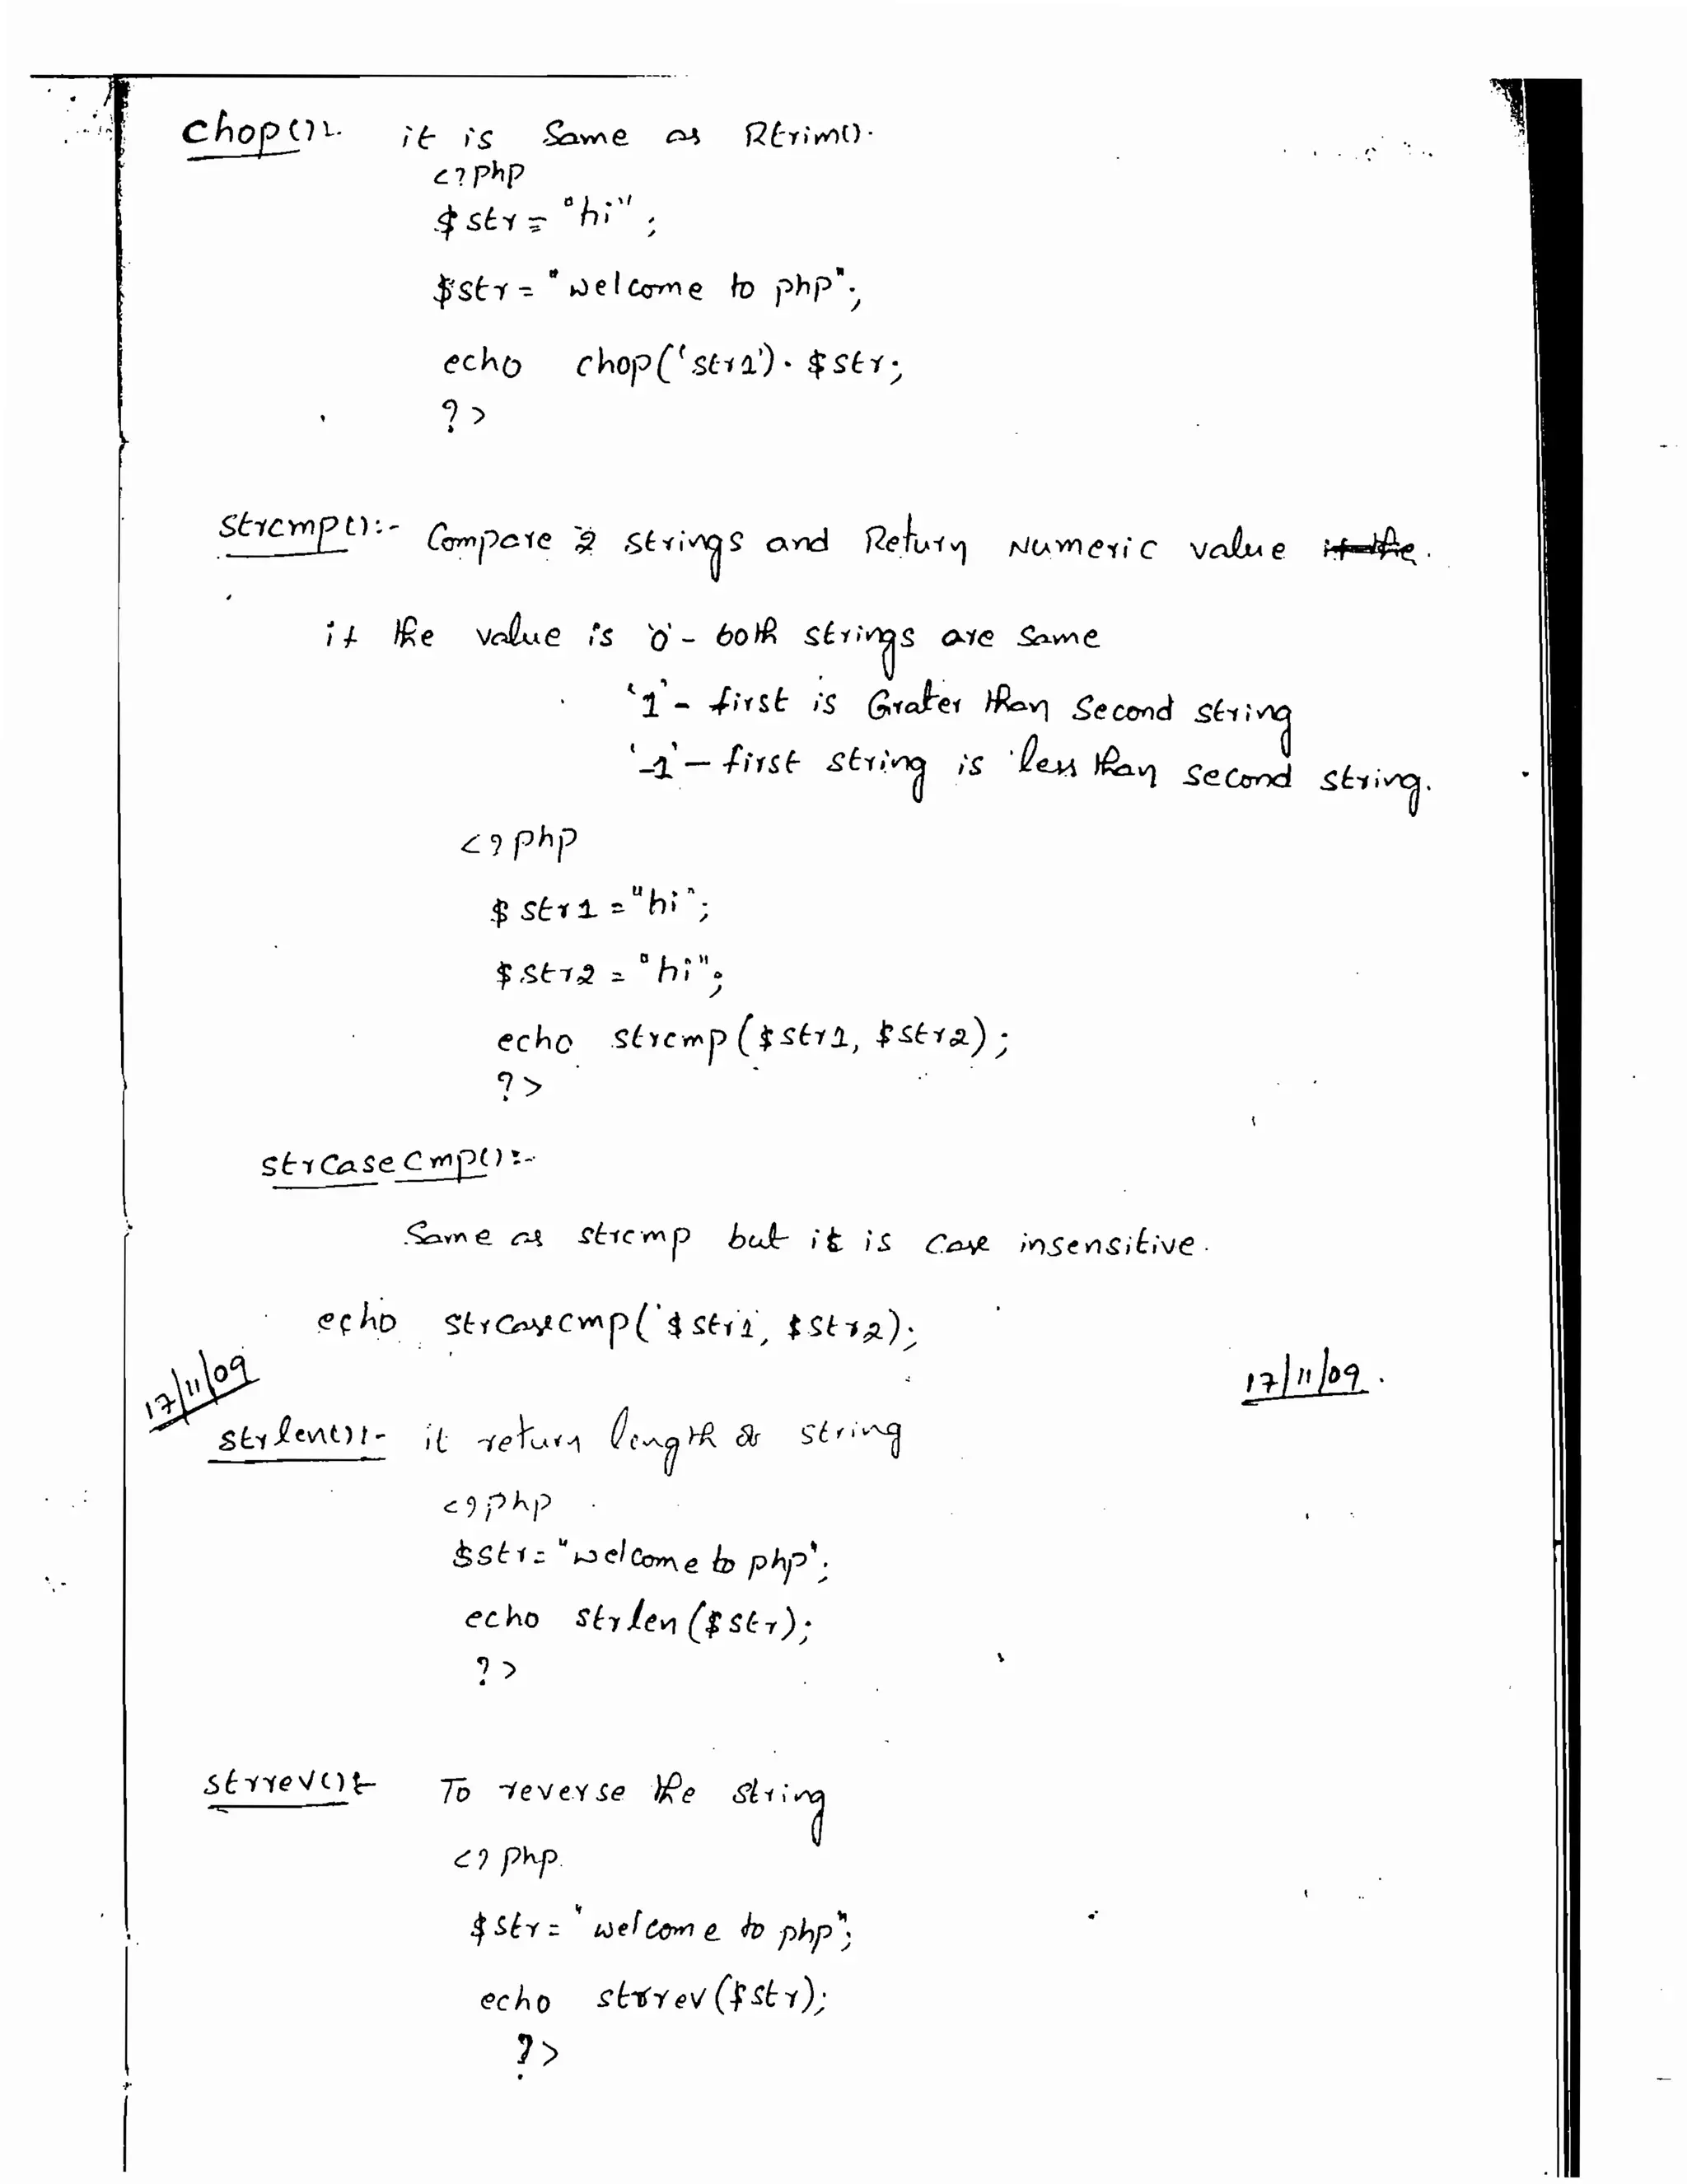 chop():- it is Same as Rtrim().
<?php
$str = "hi";
$str = "welcome to php";
echo chop('str1'). $str;
?>
strcmp():- Compare 2 strings and Return Numeric value if the.
if the value is '0' - both strings are Same
'1' - first is Grater than Second string
'-1' - first string is less than second string.
<?php
$str1 = "hi";
$str2 = "hi";
echo strcmp($str1, $str2);
?>
strcasecmp():-
Same as strcmp but it is case insensitive.
echo strcasecmp('$str1', $str2);
17/11/09
17/11/09.
strlen():- it return length of string
<?php
$str = "welcome to php";
echo strlen($str);
?>
strrev():- To reverse the string
<?php
$str = "welcome to php";
echo strrev($str);
?>